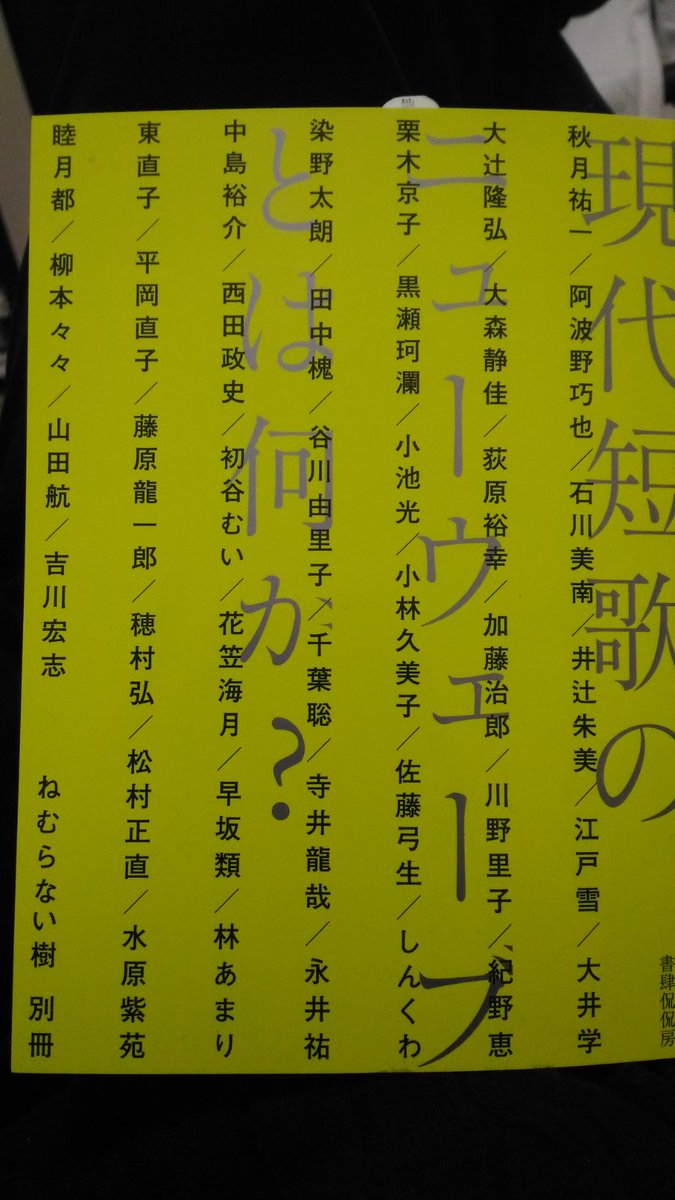 現代短歌の
ニューウェーブ
とは何か?
秋月祐一／阿波野巧也／石川美南／井辻朱美／江戸雪／大井学
大辻隆弘／大森静佳／荻原裕幸／加藤治郎／川野里子／紀野恵
栗木京子／黒瀬珂瀾／小池光／小林久美子／佐藤弓生／しんくわ
染野太朗／田中槐／谷川由里子／千葉聡／寺井龍哉／永井祐
中島裕介／西田政史／初谷むい／花笠海月／早坂類／林あまり
東直子／平岡直子／藤原龍一郎／穂村弘／松村正直／水原紫苑
睦月都／柳本々々／山田航／吉川宏志
ねむらない樹 別冊
書肆侃侃房